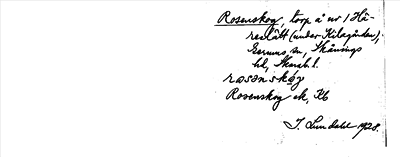 Rosenskog, torp å nr 1 Hä-
reslätt (under Kilagården),
Gerums sn, Skånings
hd, Skarab. l.
rosənskóg
Rosenskog ek, Kb
J. Lundahl 1928.